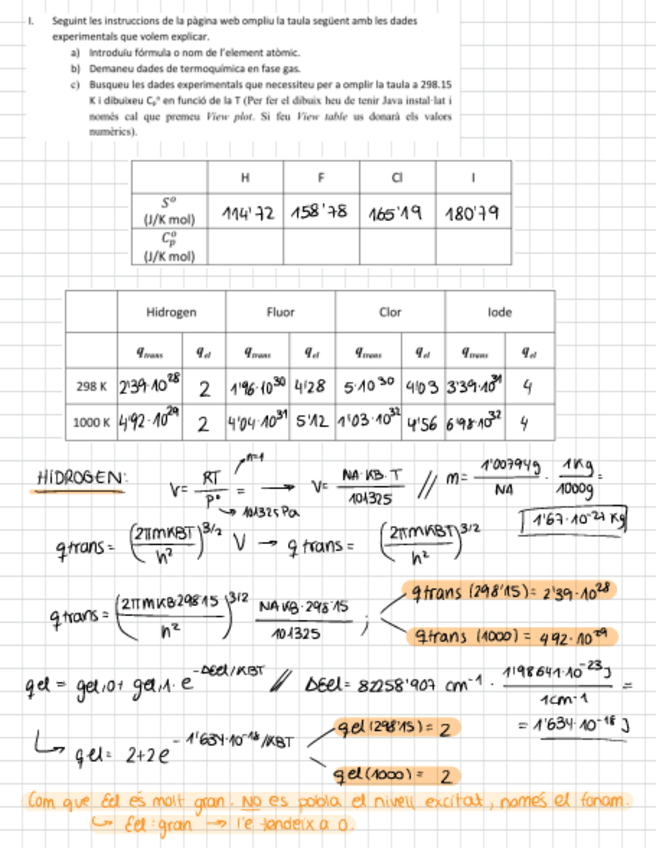 I. Seguint les instruccions de la pàgina web ompliu la taula següent amb les dades
experimentals que volem explicar.
a) Introduïu fórmula o nom de l'element atòmic.
b) Demaneu dades de termoquímica en fase gas.
c) Busqueu les dades experimentals que necessiteu per a omplir la taula a 298.15
K i dibuixeu Cₚº en funció de la T (Per fer el dibuix heu de tenir Java instal·lat i
només cal que premeu View plot. Si feu View table us donarà els valors
numèrics).
H F Cl I
Sº (J/K mol) 114'72 158'78 165'19 180'79
Cₚº (J/K mol)
Hidrogen Fluor Clor Iode
q_trans q_el q_trans q_el q_trans q_el q_trans q_el
298 K 2'39·10²⁸ 2 1'96·10³⁰ 4'28 5·10³⁰ 4'03 3'39·10³¹ 4
1000 K 4'92·10²⁹ 2 4'04·10³¹ 5'12 1'03·10³² 4'56 6'98·10³² 4
HIDROGEN: V= RT/Pº = → V= NA·KB·T/101325 // m= 1'00794g/NA · 1Kg/1000g =
n=1
→ 101325 Pa
1'67·10⁻²⁷ Kg
qtrans = (2πmKBT/h²)^3/2 V → qtrans = (2πmKBT/h²)^3/2
qtrans = (2πmKB298'15/h²)^3/2 NAKB·298'15/101325 ; qtrans (298'15) = 2'39·10²⁸
qtrans (1000) = 4'92·10²⁹
qel = gel,0 + gel,1 · e^-ΔEel/KBT // ΔEel = 82258'907 cm⁻¹ · 1'98641·10⁻²³J/1cm-1 =
= 1'634·10⁻¹⁸ J
↳ qel = 2+2e^-1'634·10⁻¹⁸/KBT
qel (298'15) = 2
qel (1000) = 2
Com que Eel és molt gran. NO es pobla el nivell excitat, només el fonam.
↳ Eel: gran → l'e tendeix a 0.